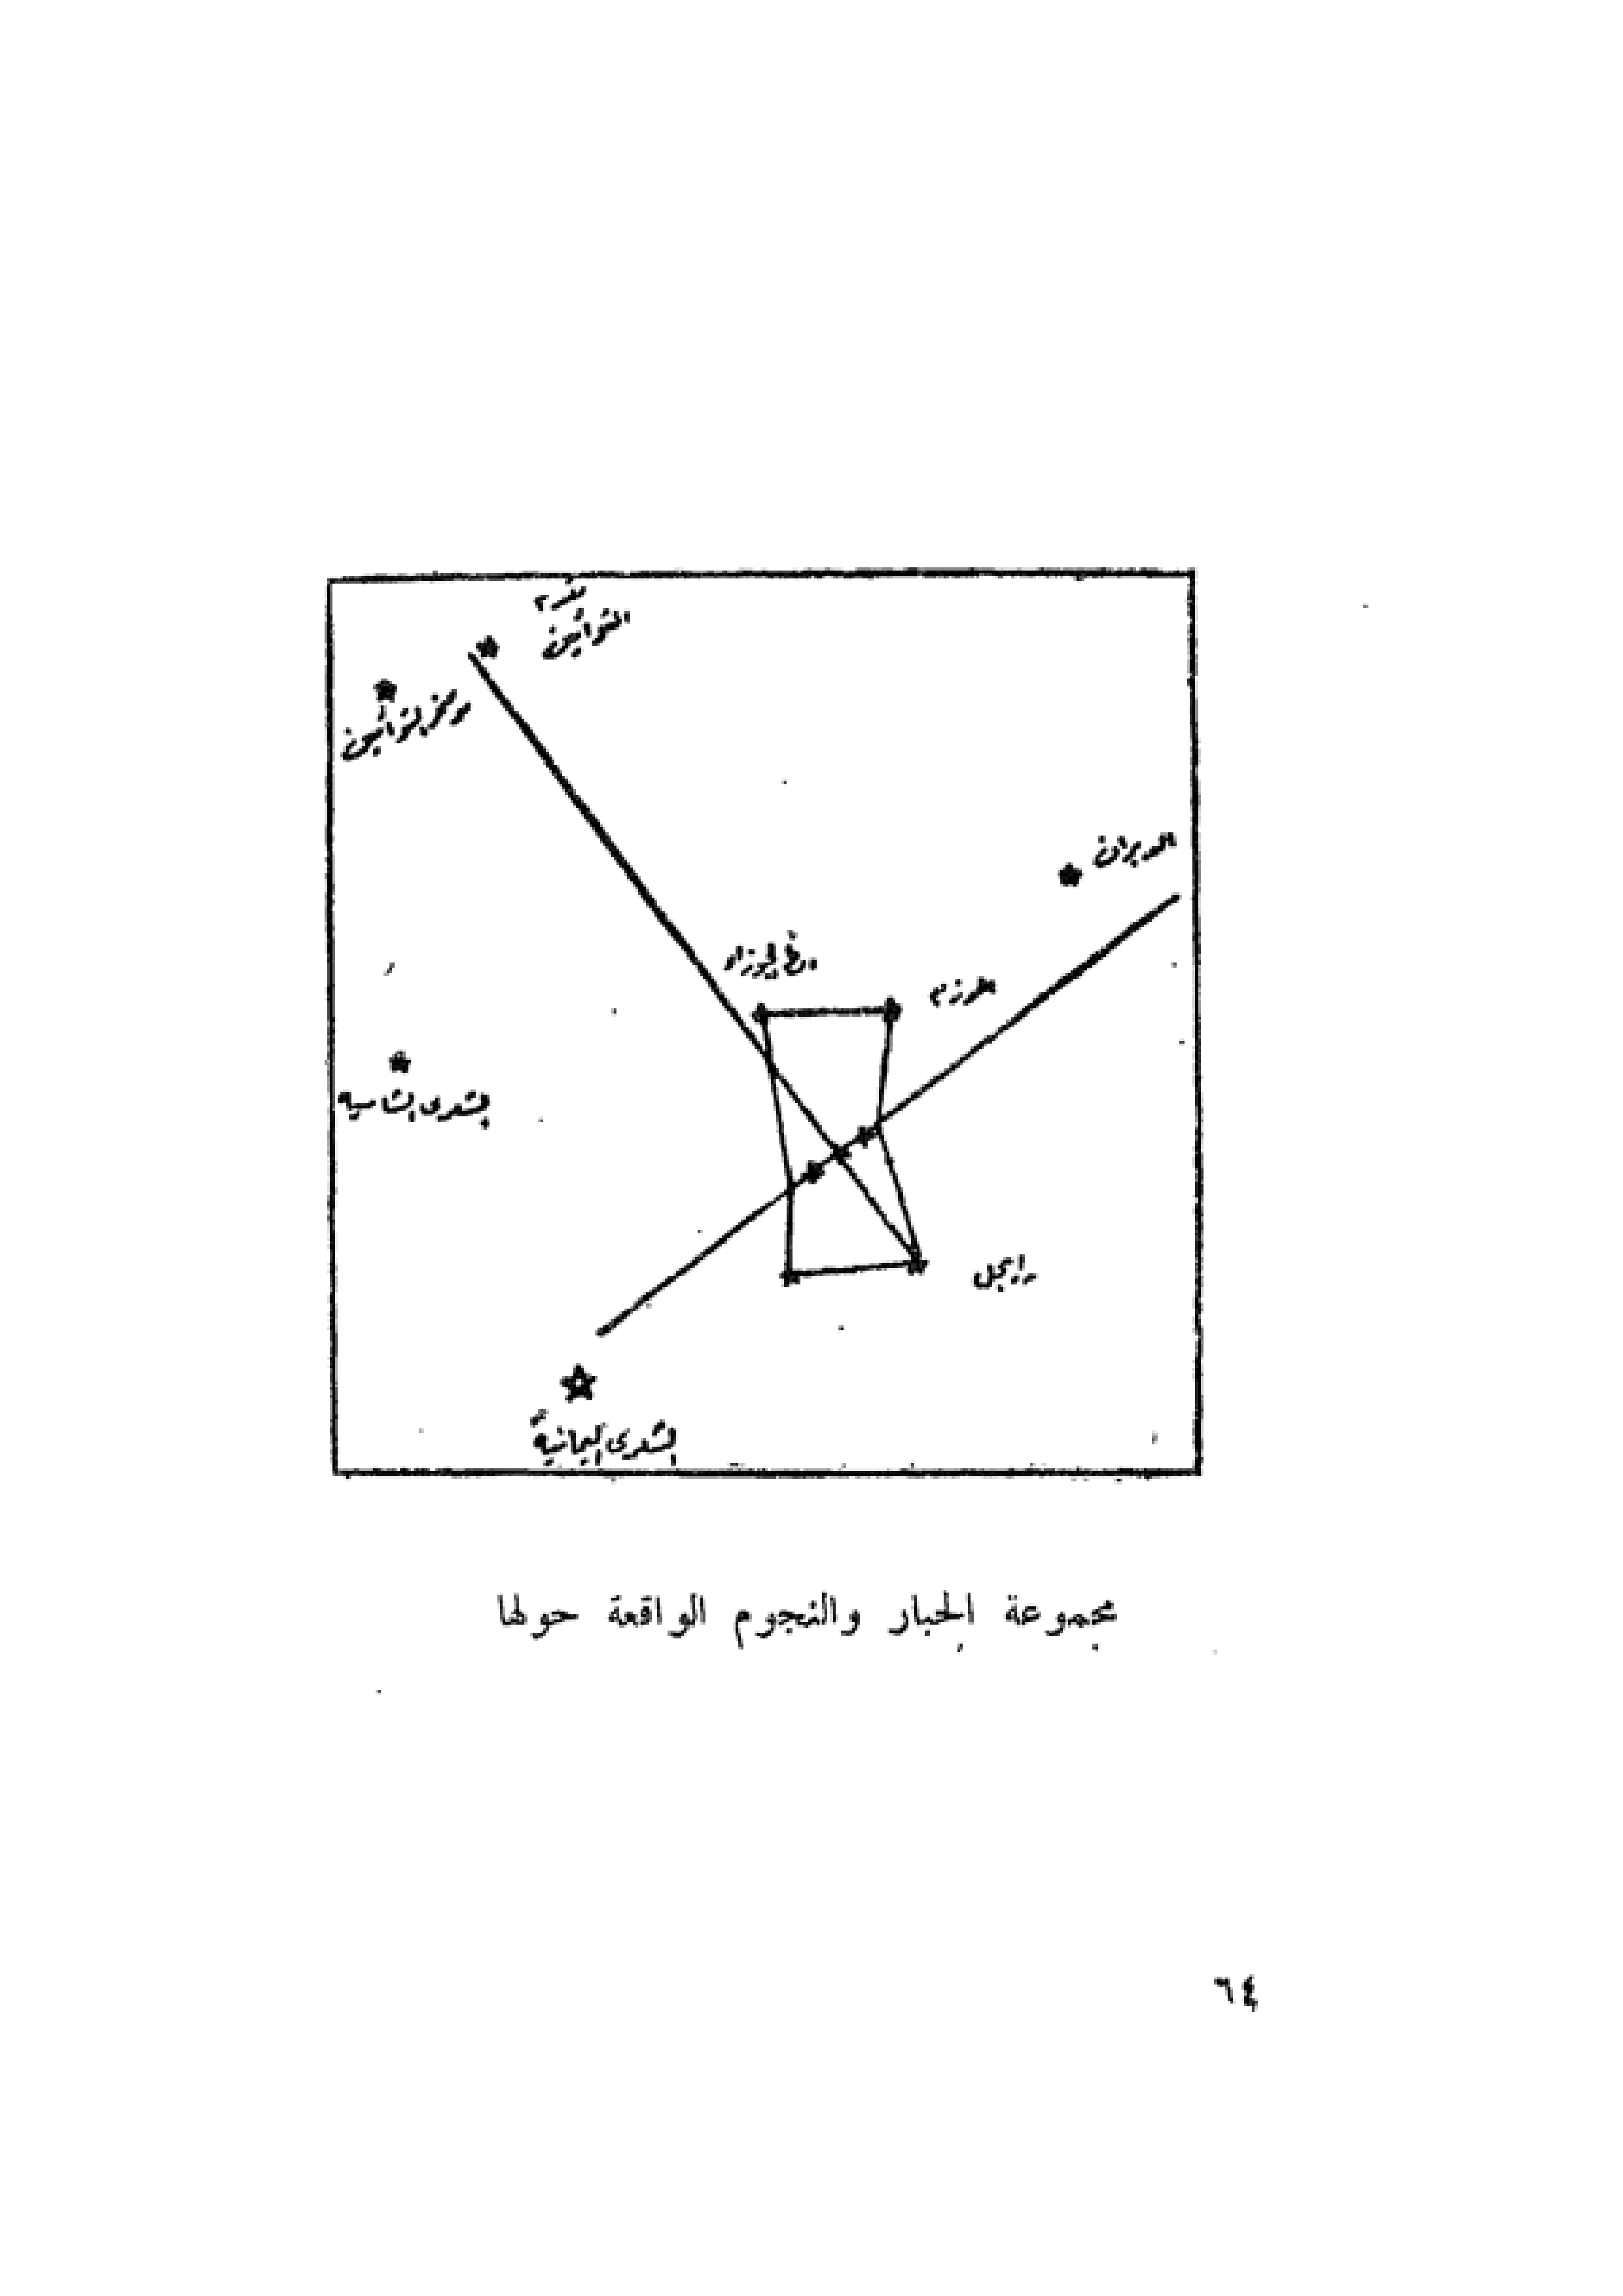 مقدم
التوأمين
مؤخر التوأمين
الدبران
المرزم
رجل
الشعرى الشامية
الشعرى اليمانية
مجموعة الجبار والنجوم الواقعة حولها
٦٤